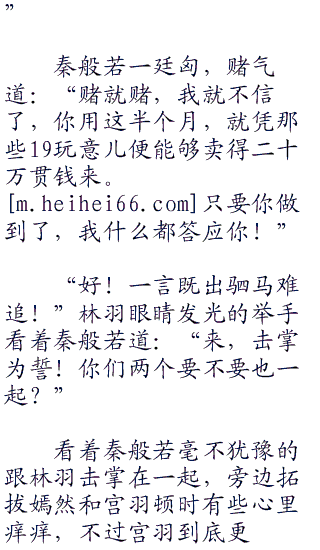 ”
秦般若一廷匈，赌气
道：“赌就赌，我就不信
了，你用这半个月，就凭那
些19玩意儿便能够卖得二十
万贯钱来。
[m.heihei66.com]只要你做
到了，我什么都答应你！”
“好！一言既出驷马难
追！”林羽眼睛发光的举手
看着秦般若道：“来，击掌
为誓！你们两个要不要也一
起？”
看着秦般若毫不犹豫的
跟林羽击掌在一起，旁边拓
拔嫣然和宫羽顿时有些心里
痒痒，不过宫羽到底更